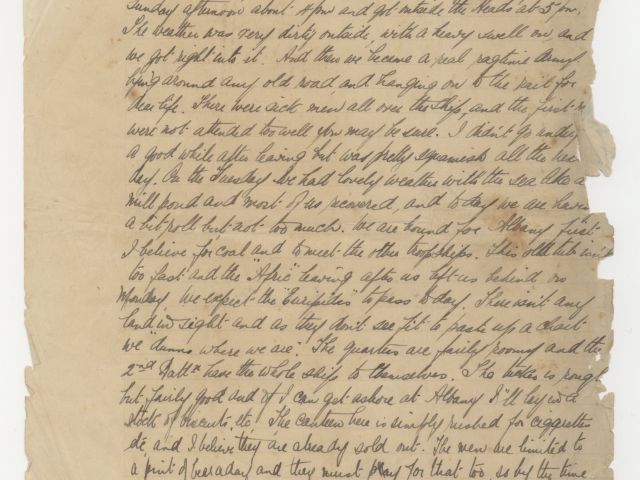 Sunday afternoon about 4pm and got outside the Heads at 5 pm.
The weather was very dirty outside, with a heavy swell on and
we got right into it. And then we became a real ragtime Army
lying around any old road, and hanging on to the rail for
dear life. There were sick men all over the ship, and the first
were not attended too well you may be sure. I didn't go under
a good while after leaving but was pretty squeamish all the
day. On the Tuesday we had lovely weather with the sea like a
mill pond and most of us recovered, and to day we are having
a bit roll but not too much. We are bound for "Albany" first
I believe for coal and to meet the other troopships. This old tub isn't
too fast and the "Afric" leaving after us left us behind on
Monday. We expect the "Euripides" to pass to day. There isn't any
land in sight and as they don't see fit to paste up a chart
we "dunno where we are". The quarters are fairly roomy and the
2nd Battn have the whole ship to themselves. The is rough
but fairly good and if I can get ashore at Albany I'll lay in a
stock of biscuits, etc. The canteen here is simply rushed for cigarettes
etc, and I believe they are already sold out. The men are limited to
a pint of beer a day and they must pay for that too, so by the time